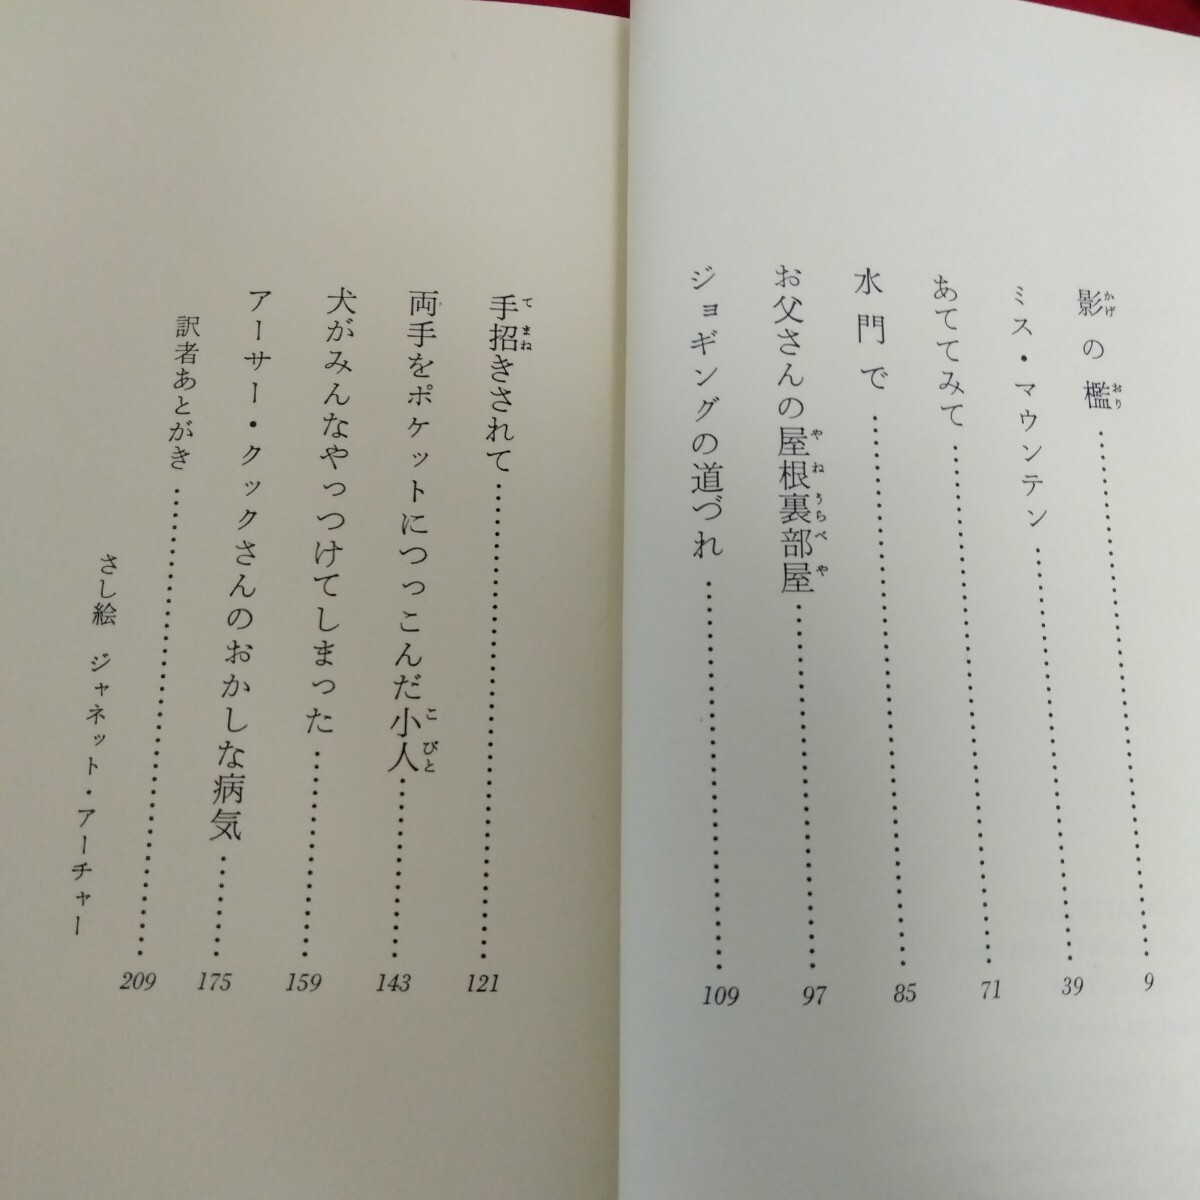 影の檻……9
ミス・マウンテン……39
あててみて……71
水門で……85
お父さんの屋根裏部屋……97
ジョギングの道づれ……109
手招きされて……121
両手をポケットにつっこんだ小人……143
犬がみんなやっつけてしまった……159
アーサー・クックさんのおかしな病気……175
訳者あとがき……209
さし絵 ジャネット・アーチャー